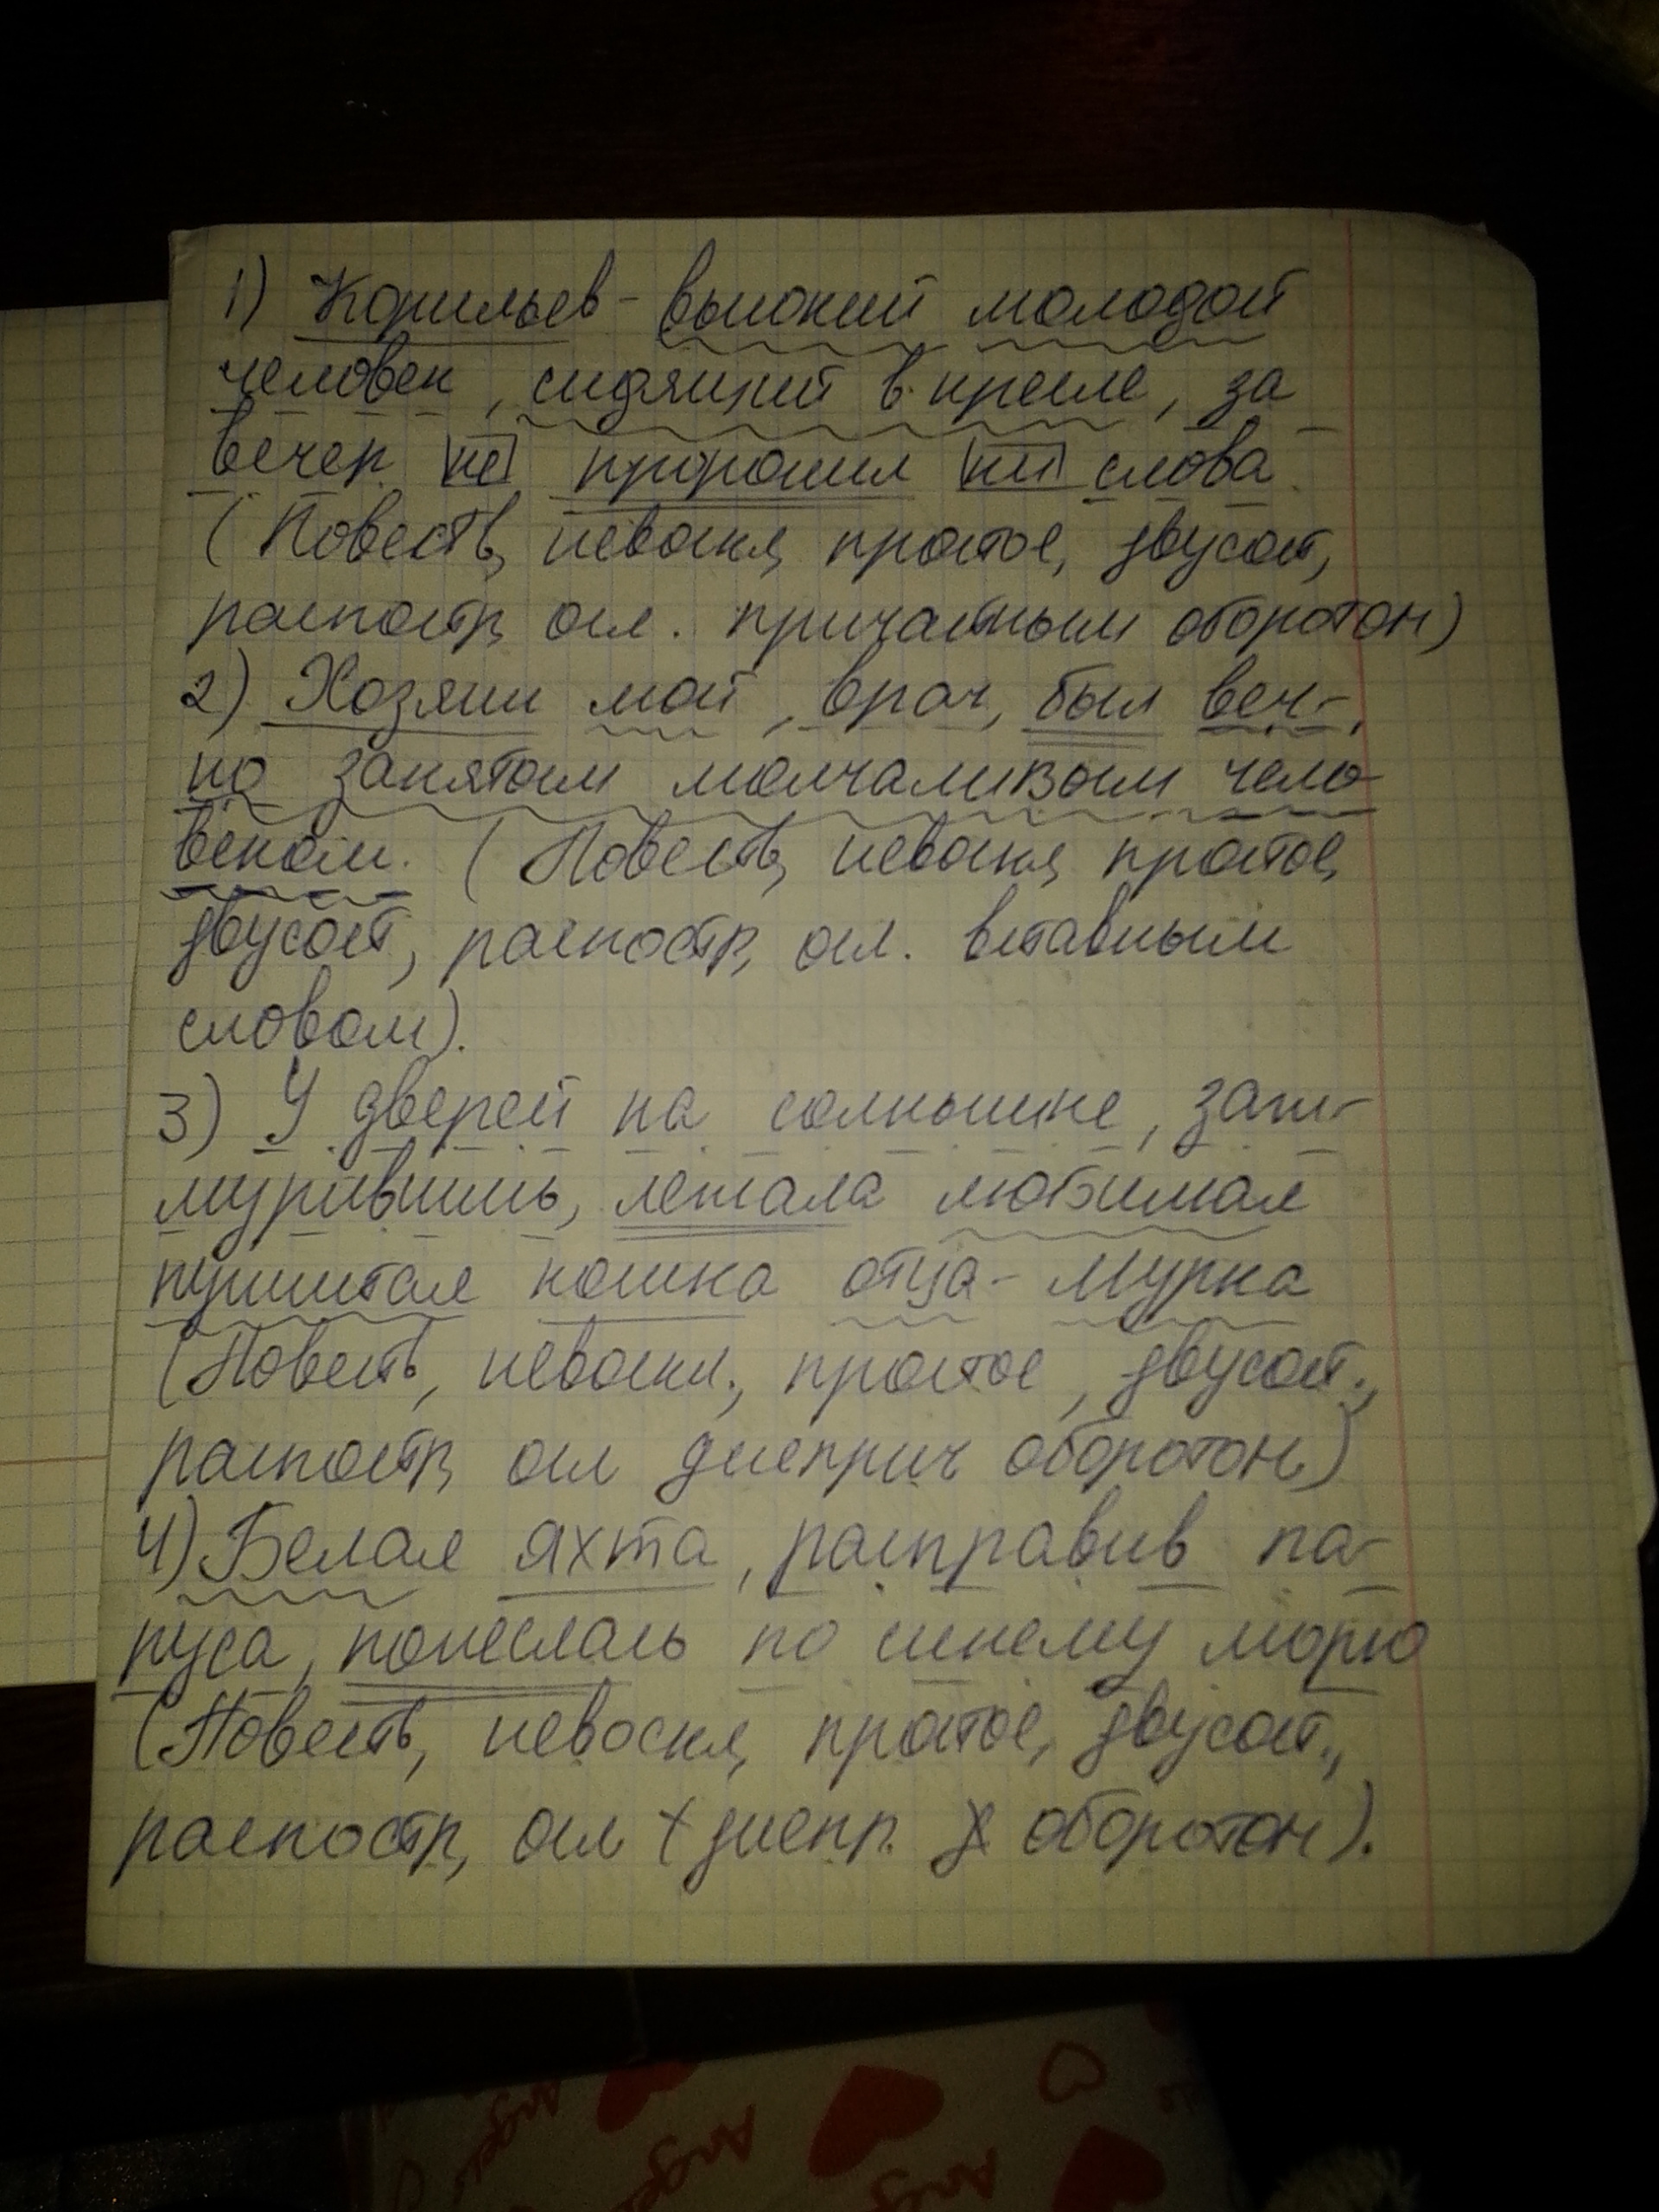 1) Корнильев - высокий молодой
человек, сидящий в кресле, за
вечер не проронил ни слова
(Повеств, невоскл, простое, двусост,
распостр, осл. причастным оборотом)
2) Хозяин мой, врач, был веч-
но занятым молчаливым чело-
веком. (Повеств, невоскл, простое,
двусост, распостр, осл. вставным
словом).
3) У дверей на солнышке, заж-
мурившись, лежала любимая
пушистая кошка отца - Мурка
(Повеств, невоскл., простое, двусост.,
распостр, осл дееприч оборотом)
4) Белая яхта, расправив па-
руса, понеслась по синему морю
(Повеств, невоскл, простое, двусост.,
распостр, осл деепр. оборотом).
Angel
Angel